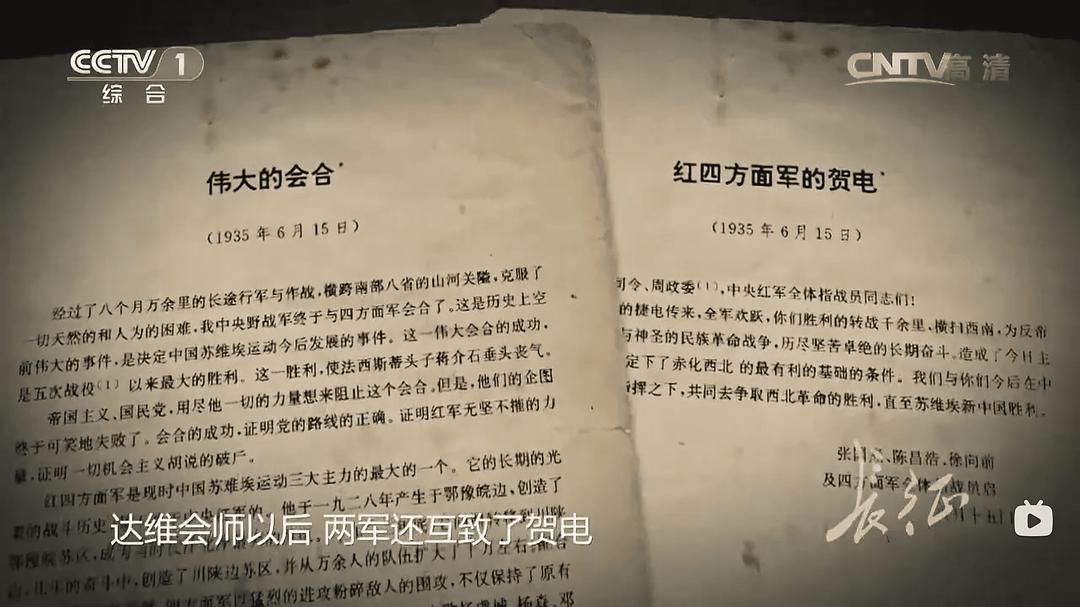 CCTV 1
综合
CNTV高清
伟大的会合*
(1935年6月15日)
经过了八个月万余里的长途行军与作战,横跨南部八省的山河关隘,克服了
一切天然的和人为的困难,我中央野战军终于与四方面军会合了。这是历史上空
前伟大的事件,是决定中国苏维埃运动今后发展的事件。这一伟大会合的成功,
是五次战役(1)以来最大的胜利。这一胜利,使法西斯蒂头子蒋介石垂头丧气。
帝国主义、国民党,用尽他一切的力量想来阻止这个会合,但是,他们的企图
终于可笑地失败了。会合的成功,证明党的路线的正确。证明红军无坚不摧的力
量,证明一切机会主义胡说的破产。
红四方面军是现时中国苏维埃运动三大主力的最大的一个。它的长期的光
荣的战斗历史
他于一九二八年产生于鄂豫皖边,创造了
鄂豫皖苏区,
奋斗中,创造了川陕边苏区,并从万余人的队伍扩大了十万左右。
猛烈的进攻粉碎敌人的围攻,不仅保持了原有
杨森、邓
红四方面军的贺电*
(1935年6月15日)
司令、周政委(1),中央红军全体指战员同志们!
的捷电传来,全军欢跃,你们胜利的转战千余里、横扫西南,为反帝
与神圣的民族革命战争,历尽坚苦卓绝的长期奋斗。造成了今日主
定下了赤化西北的最有利的基础的条件。我们与你们今后在中
指挥之下,共同去争取西北革命的胜利,直至苏维埃新中国胜利。
张国焘、陈昌浩、徐向前
及四方面军全体指战员启
月十五日
长征
达维会师以后 两军还互致了贺电